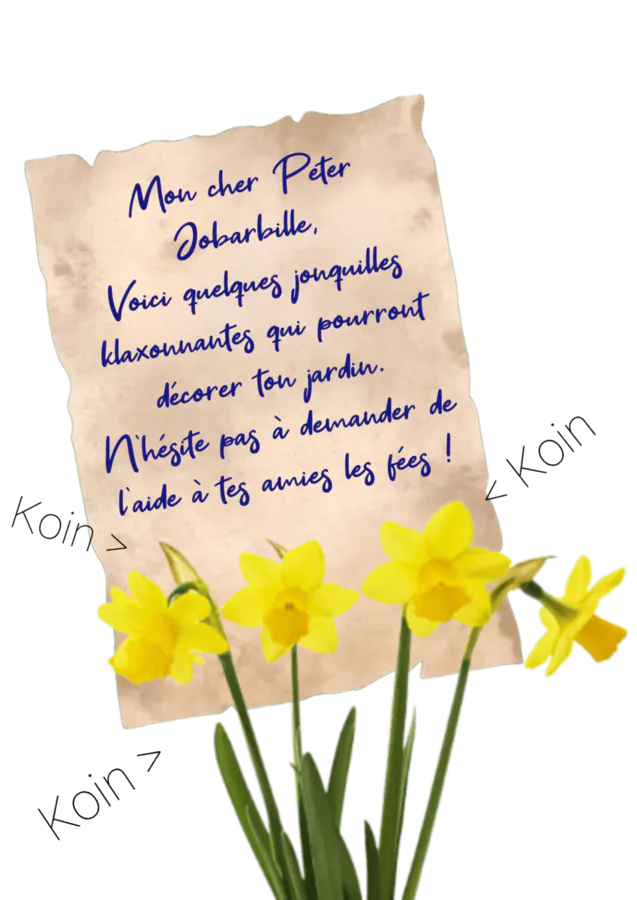 Mon cher Peter
Jobarbille,
Voici quelques jonquilles
klaxonnantes qui pourront
décorer ton jardin.
N'hésite pas à demander de
l'aide à tes amies les fées !
< Koin
Koin >
Koin >